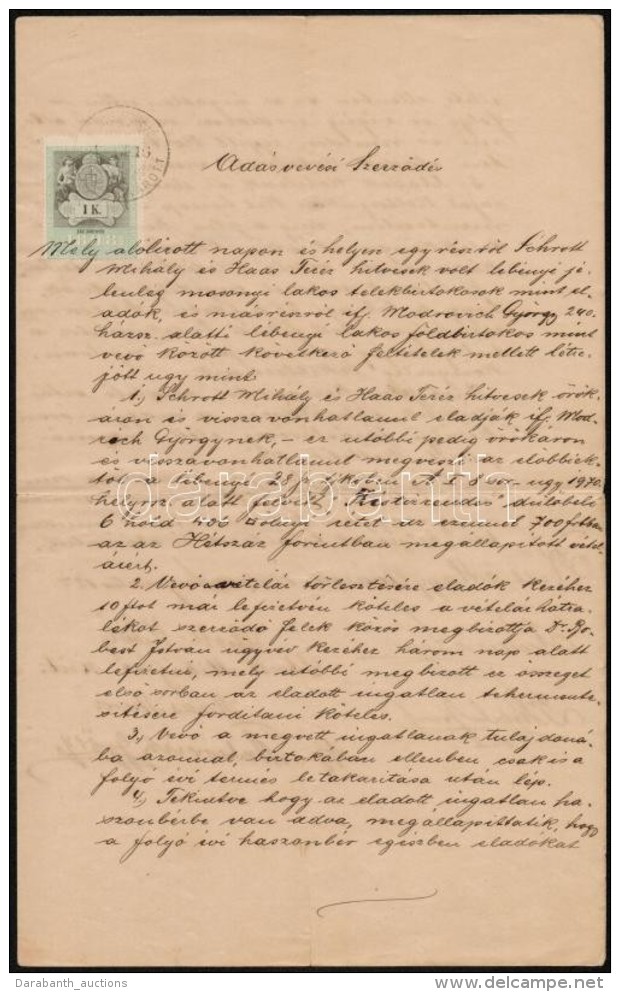 Adásvevési Szerződés
1 K.
Mely alólirott napon és helyen egyrészről Schrott
Mihály és Haas Teréz hitvesek volt lébényi je-
lenleg mosonyi lakos telekbirtokosok mint el-
adók, és másrészről ifj. Modrovich György 240
házsz. alatti lébényi lakos földbirtokos mint
vevő között következő feltételek mellett létre-
jött ugy mint:
1.) Schrott Mihály és Haas Teréz hitvesek örök-
áron és visszavonhatlanul eladják ifj. Mod-
rich Györgynek, – ez utóbbi pedig örökáron
és visszavonhatlanul megveszi az elobbiek-
től a lébényi 28 sz. tjkvben A. I. 8 sor. ugy 1970.
helyrsz. alatt felvett " dülőbeli
6 hold 406 öl rétet az ezennel 700 ftban
az az Hétszáz forintban megállapitott vétel-
árért.
2. Vevő a vételár törlesztésére eladók kezéhez
10 ftot már lefizetvén köteles a vételárhátra-
lékot szerződő felek közös megbizottja Dr. Ro-
best István ügyvéd kezéhez három nap alatt
lefizetni, mely utóbbi megbizott ez összeget
első sorban az eladott ingatlan tehermente-
sitésére forditani köteles.
3.) Vevő a megvett ingatlanak tulajdoná-
ba azonnal, birtokában ellenben csakis a
folyó évi termés letakaritása után lép.
4.) Tekintve hogy az eladott ingatlan ha-
szonbérbe van adva, megállapittatik, hogy
a folyó évi haszonbér egészben eladókat
darabanth
Darabanth_auctions
www.delcampe.net